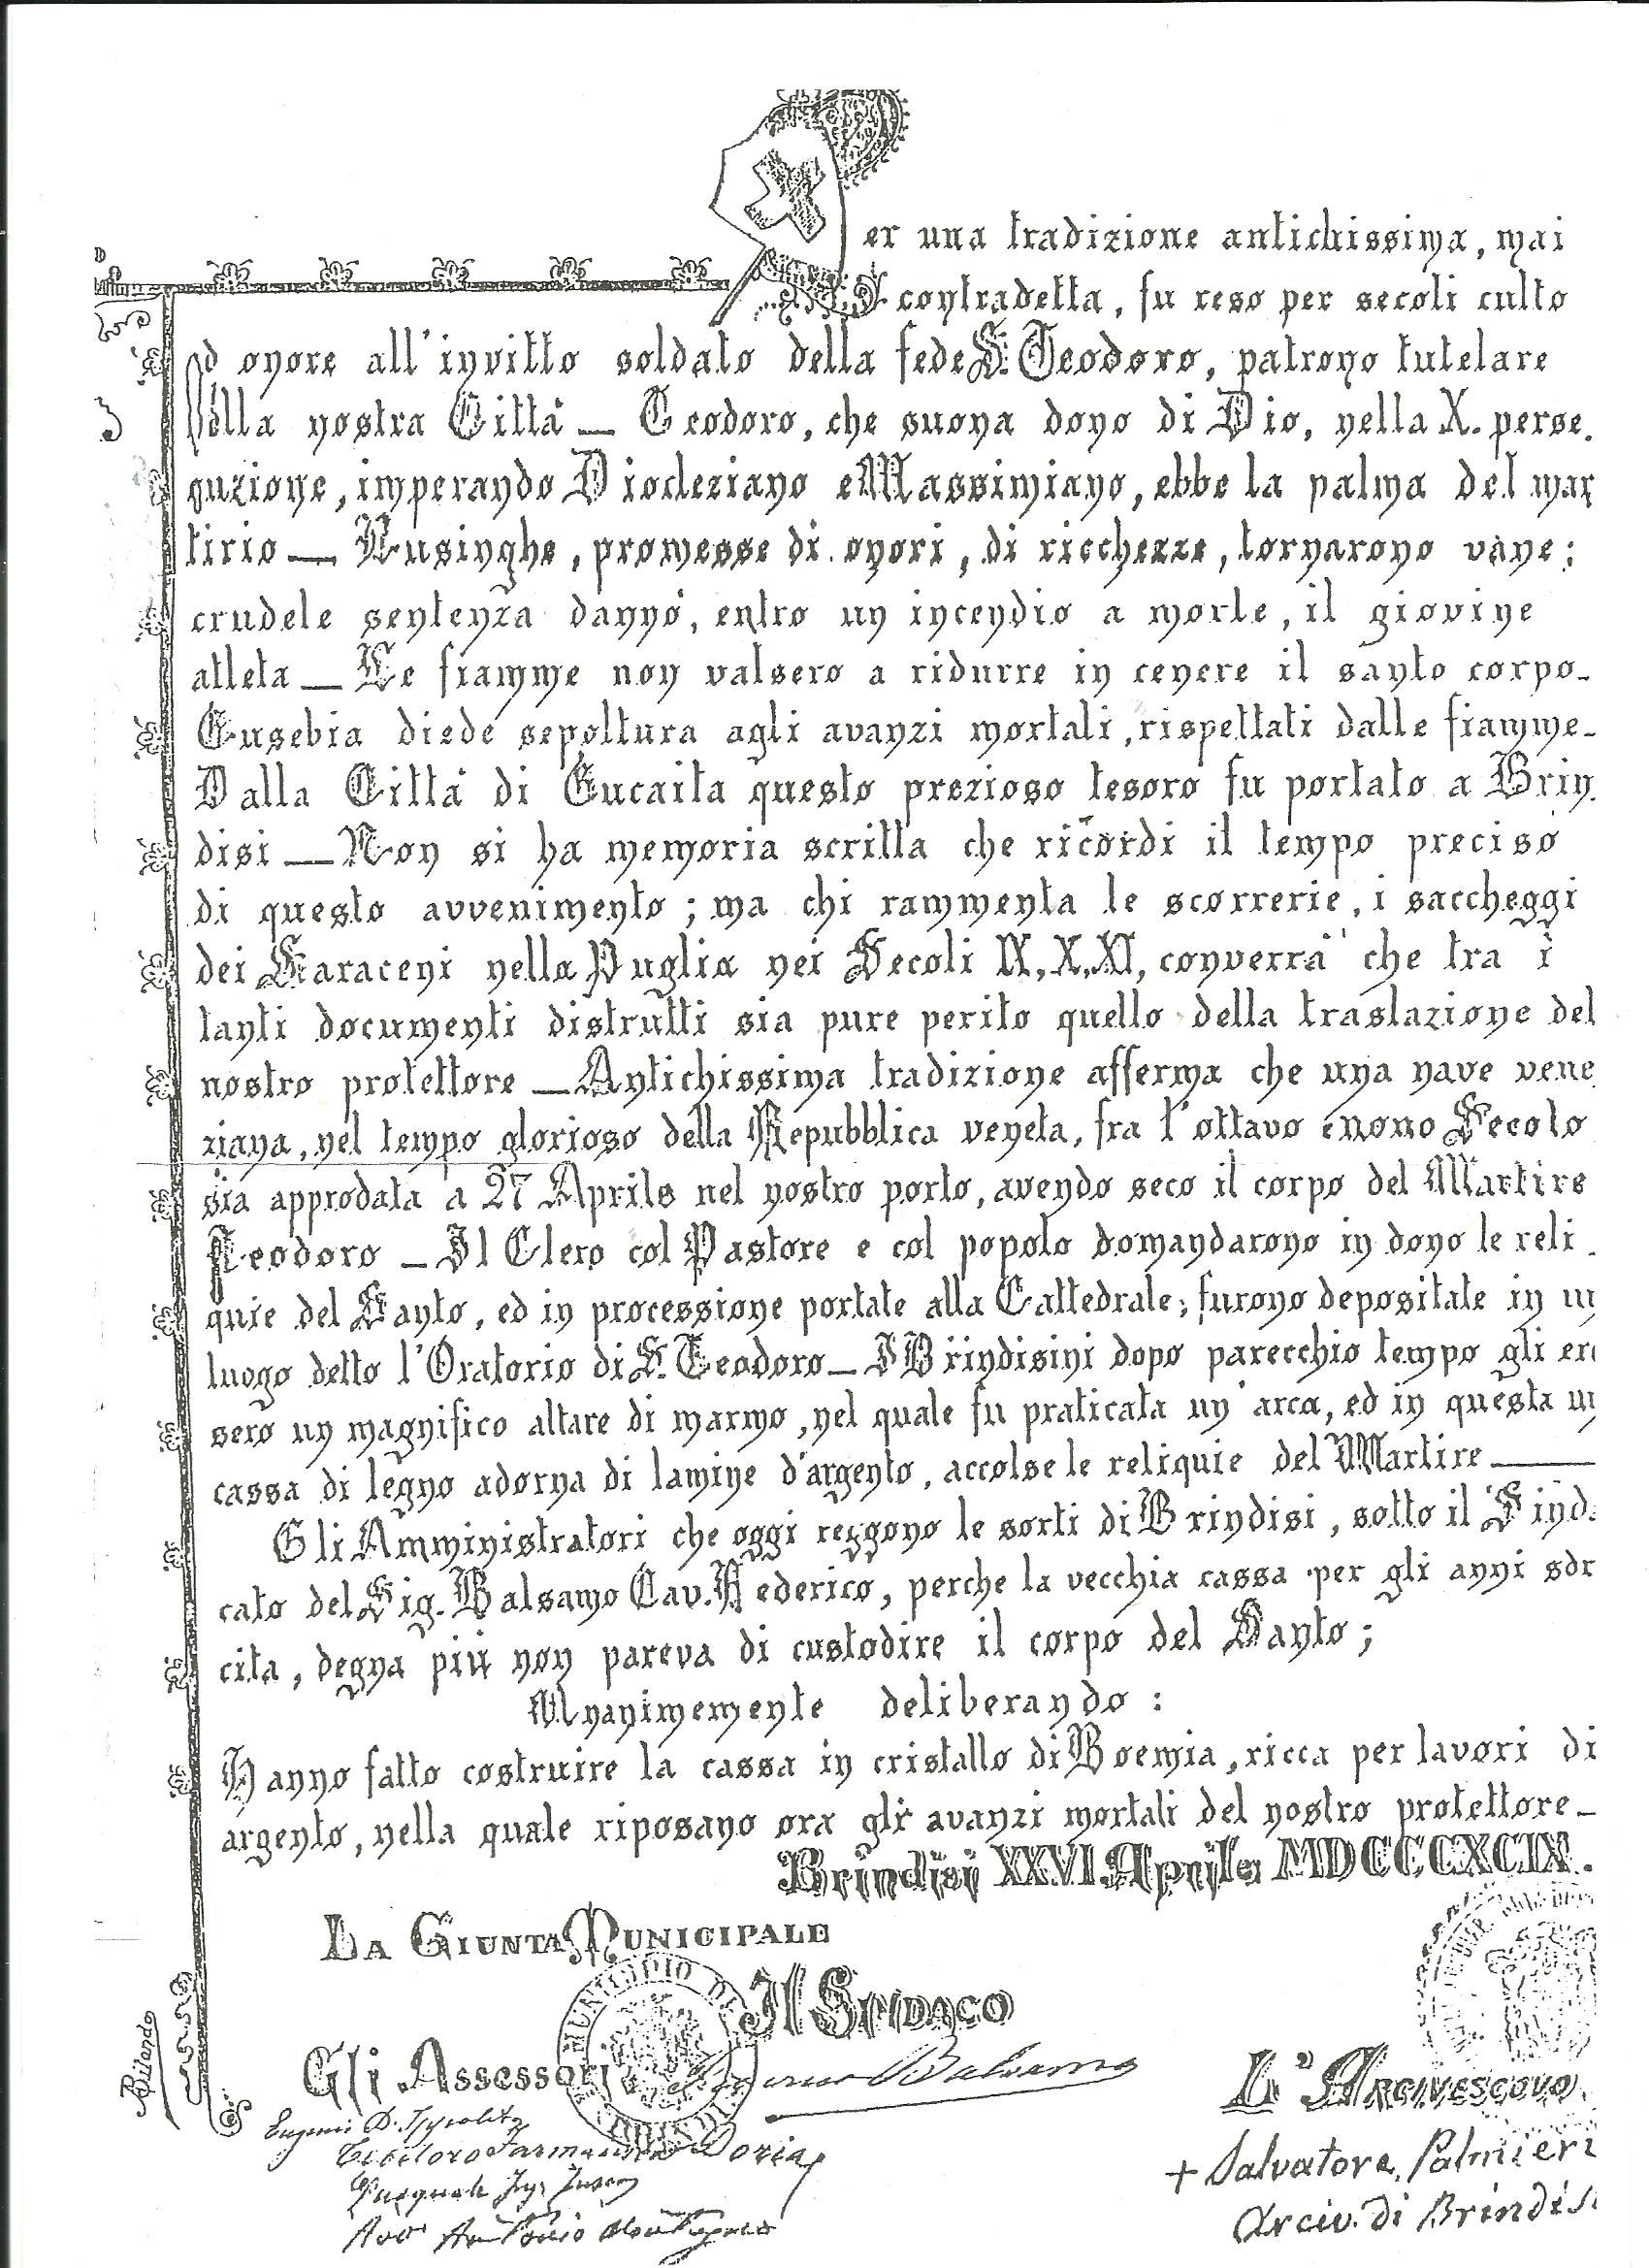 Per una tradizione antichissima, mai
contradetta, fu reso per secoli culto
ed onore all'invitto soldato della fede S. Teodoro, patrono tutelare
della nostra Città _ Teodoro, che suona dono di Dio, nella X. perse.
quzione, imperando Diocleziano e Massimiano, ebbe la palma del mar
tirio _ Lusinghe, promesse di onori, di ricchezze, tornarono vane;
crudele sentenza dannó, entro un incendio a morte, il giovine
atleta _ Le fiamme non valsero a ridurre in cenere il santo corpo_
Eusebia diede sepoltura agli avanzi mortali, rispettati dalle fiamme_
Dalla Città di Eucaita questo prezioso tesoro fu portato a Brin.
disi _ Non si ha memoria scritta che ricordi il tempo preciso
di questo avvenimento; ma chi rammenta le scorrerie, i saccheggi
dei Saraceni nella Puglia nei Secoli IX, X, XI, converrà che tra i
tanti documenti distrutti sia pure perito quello della traslazione del
nostro protettore _ Antichissima tradizione afferma che una nave vene
ziana, nel tempo glorioso della Repubblica veneta, fra l'ottavo e nono Secolo
sia approdata a 27 Aprile nel nostro porto, avendo seco il corpo del Martire
Teodoro _ Il Clero col Pastore e col popolo domandarono in dono le reli.
quie del Santo, ed in processione portate alla Cattedrale, furono depositate in un
luogo detto l'Oratorio di S. Teodoro _ I Brindisini dopo parecchio tempo gli ere
sero un magnifico altare di marmo, nel quale fu praticata un'arca, ed in questa un
cassa di legno adorna di lamine d'argento, accolse le reliquie del Martire _
Gli Amministratori che oggi reggono le sorti di Brindisi, sotto il Sinda
cato del Sig. Balsamo Cav. Federico, perche la vecchia cassa per gli anni sdr
cita, degna più non pareva di custodire il corpo del Santo;
Unanimemente deliberando:
Hanno fatto costruire la cassa in cristallo di Boemia, ricca per lavori di
argento, nella quale riposano ora gli avanzi mortali del nostro protettore_
Brindisi XXVI Aprile MDCCCXCIX.
La Giunta Municipale
Il Sindaco
Gli Assessori
Balsamo
L'Arcivescovo
Eugenio D. Ippolito
Teodoro Doria
Pasquale
Avv Antonio
+ Salvatore Palmieri
Arciv. di Brindisi
MUNICIPIO DI BRINDISI